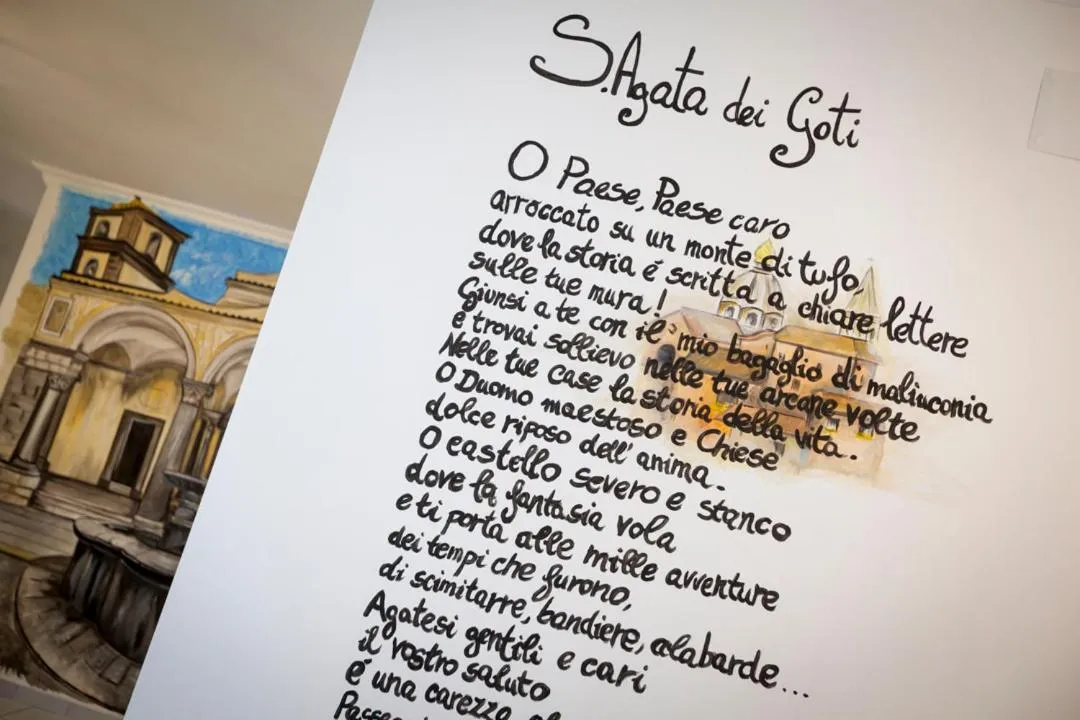 S. Agata dei Goti
O Paese, Paese caro
arroccato su un monte di tufo,
dove la storia é scritta a chiare lettere
sulle tue mura!
Giunsi a te con il mio bagaglio di maliuconia
e trovai sollievo nelle tue arcane volte
Nelle tue case la storia della vita.
O Duomo maestoso e Chiese
dolce riposo dell'anima.
O castello severo e stanco
dove la fantasia vola
e ti porta alle mille avventure
dei tempi che furono,
di scimitarre, bandiere, alabarde...
Agatesi gentili e cari
il vostro saluto
é una carezza